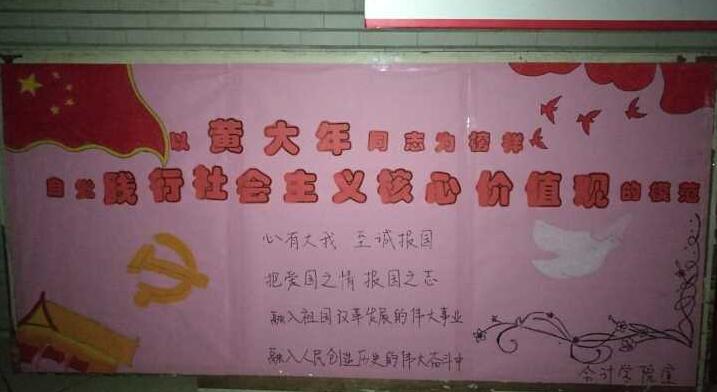 以黄大年同志为榜样
自觉践行社会主义核心价值观的模范
心有大我 至诚报国
把爱国之情 报国之志
融入祖国改革发展的伟大事业
融入人民创造历史的伟大奋斗中
会计学院宣